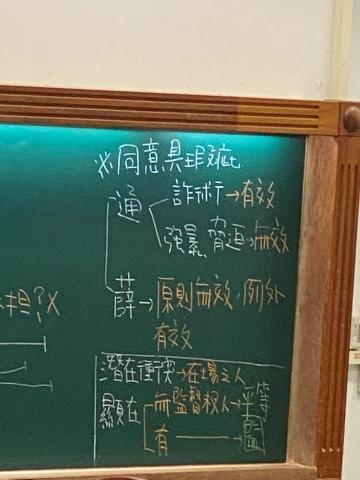 ※同意具瑕疵
通 詐術→有效
強暴、脅迫→無效
薛→原則無效,例外
有效
想?X
潛在衝突→在場之人
顯在 無監督权人→平等
有——→監